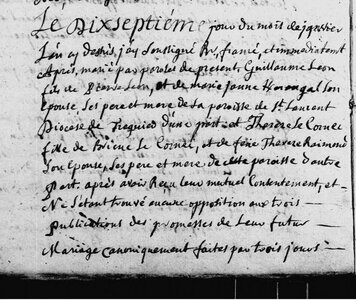 Le Dixseptiéme jour du mois de janvier
L'an cy dessus, j'ay soussigné fiancé, et immediatemt
Apres, marié par paroles de present, Guillaume Leon
fils de Leon, et de marie jeanne son
Epouse, Ses pere et mere de la paroisse de St Laurent
Diocese de Treguier d'une part: et Therese le Cornec
fille de le Cornec, et de feüe Therese Raimond
Son Epouse, Ses pere et mere de cette paroisse d'autre
Part, apres avoir Reçu leur mutuel Consentement, et
Ne S'etant trouvé aucune opposition aux trois
Publications des promesses de Leur futur
Mariage canoniquement faites par trois jours